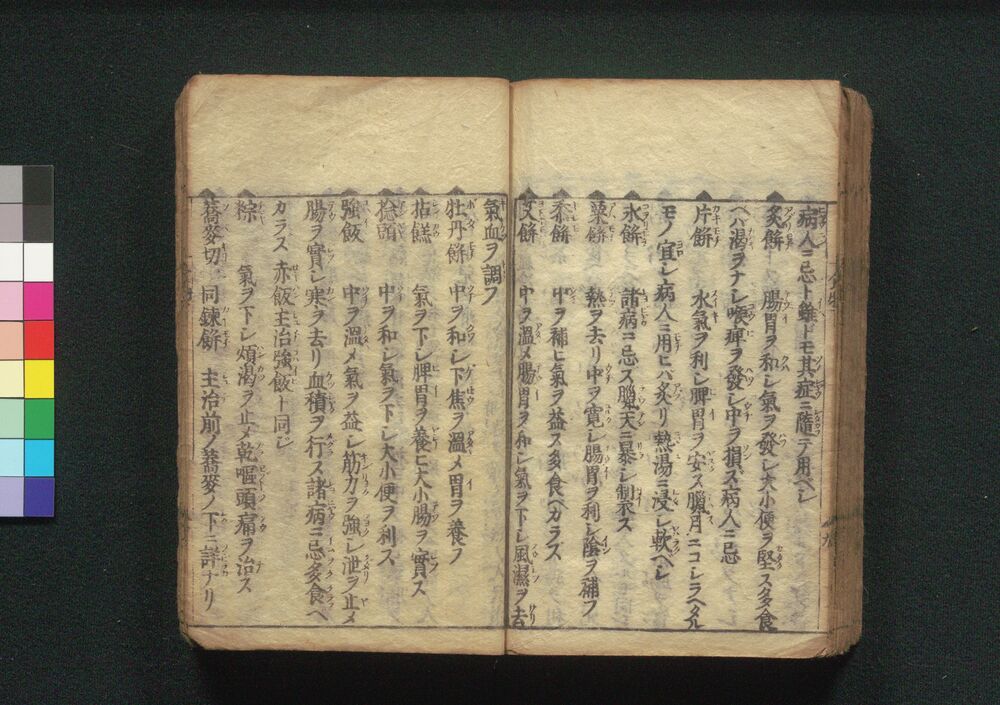 病人ニ忌ト雖ドモ其症ニ隨テ用ベシ
炙餅 腸胃ヲ和シ氣ヲ發シ大小便ヲ堅ス多食
ヘハ渇ヲナシ喉痺ヲ發シ中ヲ損ズ病人ニ忌
片餅 水氣ヲ利シ脾胃ヲ安ス臘月ニコシラヘタル
モノ宜シ病人ニ用ヒバ炙リ熱湯ニ浸シ軟ベシ
氷餅 諸病ニ忌ズ臘天ニ暴シ制スス
粟餅 熱ヲ去リ中ヲ寛シ腸胃ヲ利シ陰ヲ補フ
黍餅 中ヲ補ヒ氣ヲ益ス多食ベカラズ
艾餅 中ヲ溫メ腸胃ヲ和シ氣ヲ下シ風濕ヲ去
氣血ヲ調フ
牡丹餅 中ヲ和シ下焦ヲ溫メ胃ヲ養フ
拈餻 氣ヲ下シ脾胃ヲ養ヒ大小腸ヲ實ス
捻頭 中ヲ和シ氣ヲ下シ大小便ヲ利ス
強飯 中ヲ溫メ氣ヲ益シ筋力ヲ強シ泄ヲ止メ
腸ヲ實シ寒ヲ去リ血積ヲ行ス諸病ニ忌多食ベ
カラズ 赤飯主治強飯ト同ジ
粽 氣ヲ下シ煩渇ヲ止メ乾嘔頭痛ヲ治ス
蕎麥切 同鍊餅 主治前ノ蕎麥ノ下ニ詳ナリ